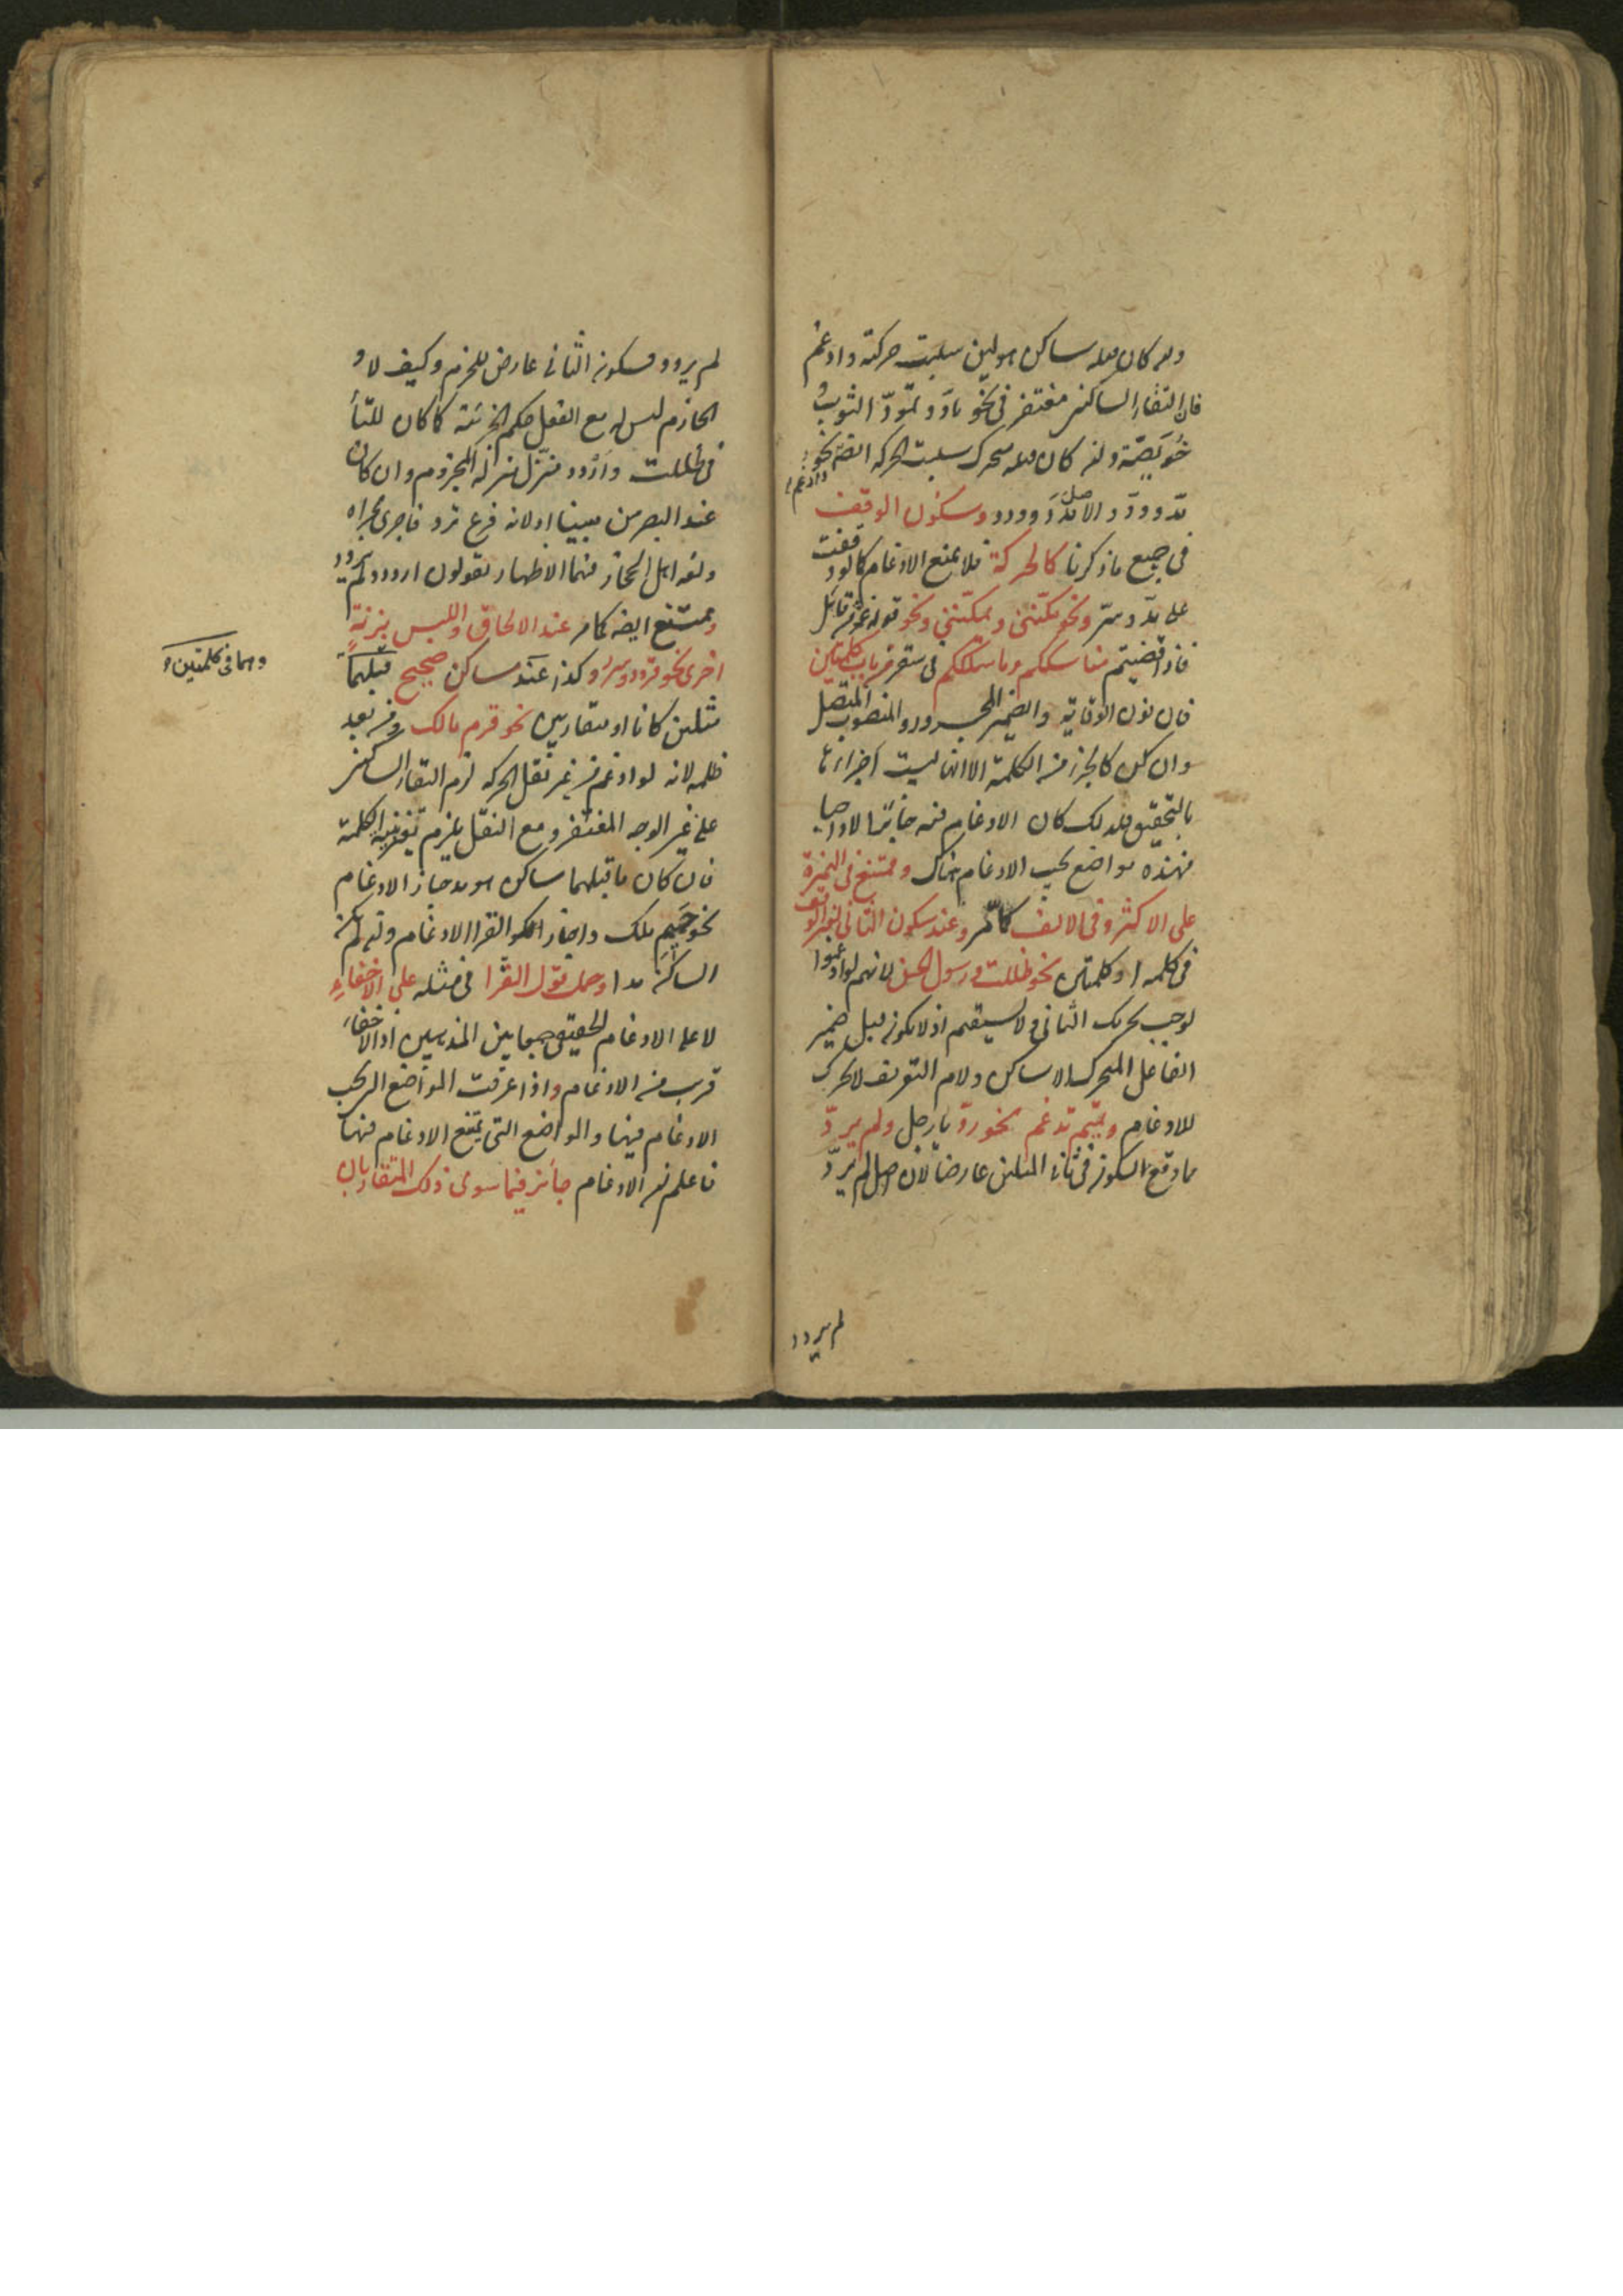 وان كان قبله ساكن هو لين سلبت حركته وادغم
فان التقاء الساكنين مغتفر في نحو مادّ وتمودّ الثوب و
خُوَيصّة وان كان قبله متحرك سلبت الحركة ايضا نحو
وادغم
مدّ وودّ والاصل مدد وودد وسكون الوقف
في جميع ما ذكرنا كالحركة فلا يمنع الادغام كما لو وقفت
على مدّ وسرّ ونحو مكّنني ويمكنني ونحو قوله عز من قائل
فاذا قضيتم مناسككم وما سلككم في سقر من باب كلمتين
فان نون الوقاية والضمير المجرور والمنصوب المتصل
وان كان كالجزء من الكلمة الا انها ليست اجزاءها
بالتحقيق فلذلك كان الادغام فيه جائزا لا واجبا
فهذه مواضع يجب الادغام هناك وممتنع في الهمزة
على الاكثر وفي الالف كما مر وعند سكون الثاني لغير الوقف
في كلمة او كلمتين نحو ظللت ورسول الحسن لانهم لو ادغموا
لوجب تحريك الثاني ولا يستقيم اذ لا يكون قبل ضمير
الفاعل المتحرك الا ساكن ولام التعريف لا يحرك
للادغام وتميم تدغم نحو ردّ يا رجل ولم يردّ
مما وقع السكون في ثاني المثلين عارضا لان اصل لم يردّ
لم يردد
لم يردد فسكون الثاني عارض للجزم وكيف لا و
الجازم ليس له مع الفعل حكم الجزئية كما كان للتاء
في ظللت واردد منزل منزلة المجزوم وان كان
عند البصريين مبنيا او لانه فرع ترد فاجري مجراه
ولغة اهل الحجاز فيهما الاظهار يقولون اردد ولم يردد
وممتنع ايضا كما مر عند الالحاق واللبس بزنةٍ
اخرى نحو قردد وسرر وكذا عند ساكن صحيح قبلهما
وهما في كلمتين
مثلين كانا او متقاربين نحو قرم مالك ومن بعد
ظلمه لانه لو ادغم من غير نقل الحركة لزم التقاء الساكنين
على غير الوجه المغتفر ومع النقل يلزم تغيير بنية الكلمة
فان كان ما قبلهما ساكن هو مد جاز الادغام
نحو حميم ملك واجاز اكثر القراء الادغام وان لم يكن
الساكن مدا وحمل قول القرا في مثله على الاخفاء
لا على الادغام الحقيقي جمعا بين المذهبين اذ الاخفاء
قريب من الادغام واذا عرفت المواضع التي يجب
الادغام فيها والمواضع التي يمتنع الادغام فيها
فاعلم ان الادغام جائز فيما سوى ذلك المتقاربان